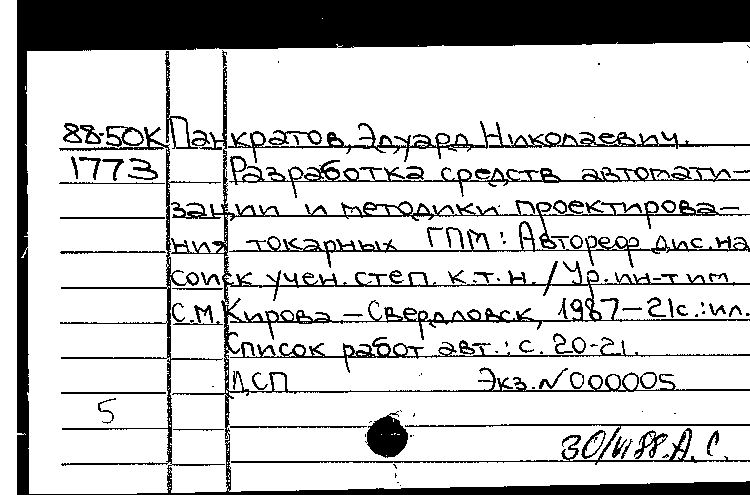 88-50К Панкратов, Эдуард Николаевич.
1773 Разработка средств автомати-
зации и методики проектирова-
ния токарных ГПМ: Автореф дис. на
соиск учен. степ. к.т.н. / Ур. ин-т им.
С.М. Кирова – Свердловск, 1987 – 21с.: ил.
Список работ авт.: с. 20-21.
ДСП Экз. № 000005
5
30/VI 88. А. С.